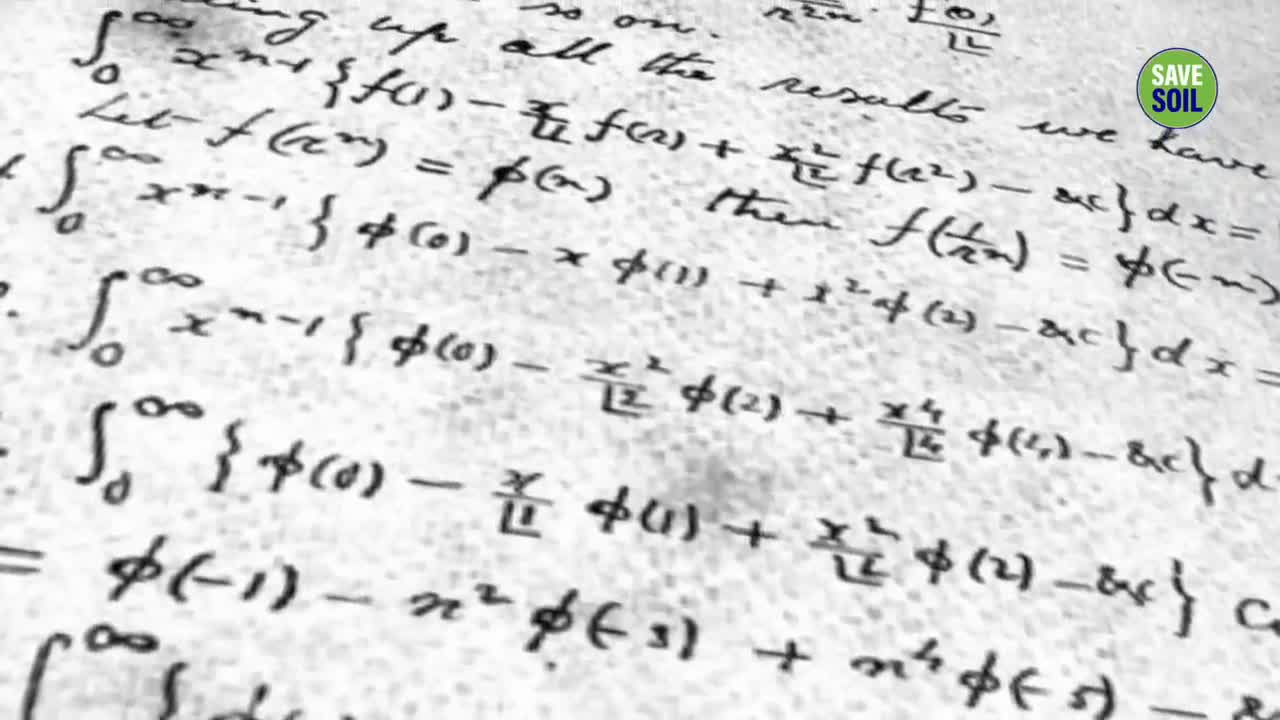 so on.
up all the results we have
∫₀^∞ x^{n-1} {f(1) - x/⌊1 f(r) + x²/⌊2 f(r²) - &c} dx =
Let f(rⁿ) = φ(n) then f(1/rⁿ) = φ(-n)
∫₀^∞ x^{n-1} {φ(0) - x φ(1) + x² φ(2) - &c} dx =
∫₀^∞ x^{n-1} {φ(0) - x²/⌊2 φ(2) + x⁴/⌊4 φ(4) - &c} d
∫₀^∞ {φ(0) - x/⌊1 φ(1) + x²/⌊2 φ(2) - &c}
= φ(-1) - n² φ(-3) + n⁴ φ(-5) -
∫^∞ {
SAVE
SOIL